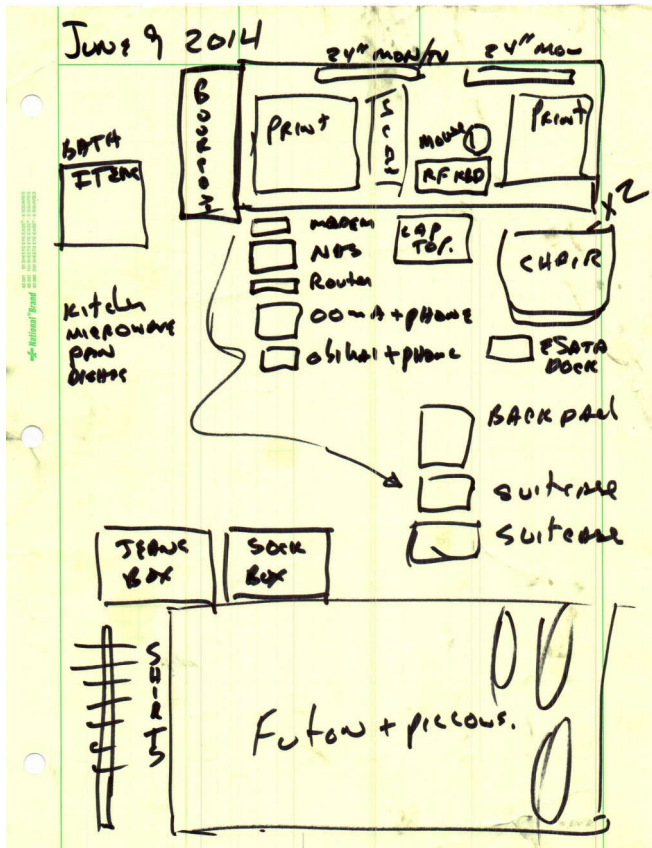 June 9 2014
24" MON/TV
24" MON
BOURBON
PRINT
SCAN
MOUSE
RF KBD
PRINT
BATH
ITEMS
X2
MODEM
NAS
Router
OOMA + PHONE
obihai + phone
LAP
TOP.
CHAIR
ESATA
DOCK
Kitchen
MICROWAVE
PAN
DISHES
National® Brand
BACKPACK
suitcase
suitcase
JEANS
BOX
SOCK
BOX
SHIRTS
Futon + pillows.